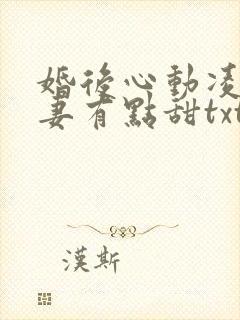 婚後心動凌
妻有點甜txt
漢斯